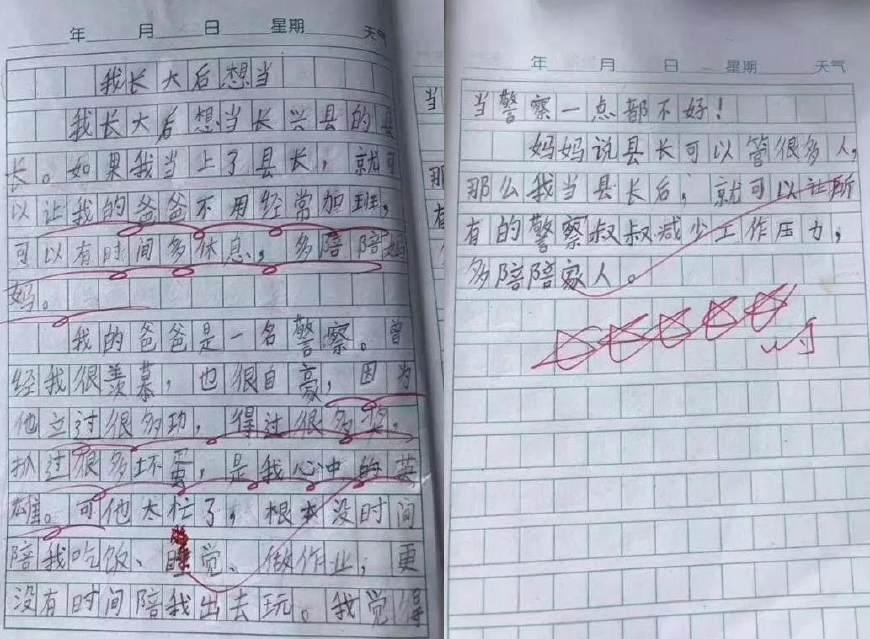 年 月 日 星期 天气
我长大后想当
我长大后想当长兴县的县
长。如果我当上了县长，就可
以让我的爸爸不用经常加班，
可以有时间多休息，多陪陪妈
妈。
我的爸爸是一名警察。曾
经我很羡慕，也很自豪，因为
他立过很多功，得过很多奖，
抓过很多坏蛋，是我心中的英
雄。可他太忙了，根本没时间
陪我吃饭、睡觉、做作业，更
没有时间陪我出去玩。我觉得
当
那
年 月 日 星期 天气
当警察一点都不好！
妈妈说县长可以管很多人，
那么我当县长后，就可以让所
有的警察叔叔减少工作压力，
多陪陪家人。